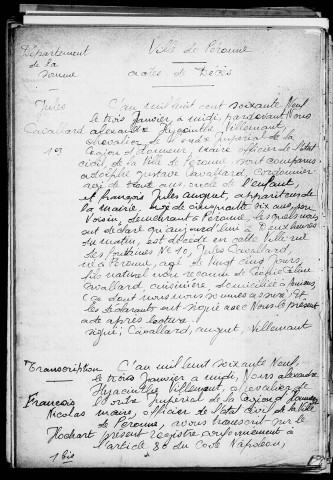 Département
de la
Somme
Ville de Péronne
actes de Décès
Jules
Cavallard
1er
L'an mil huit cent soixante Neuf
le trois Janvier, à midi, pardevant Nous
alexandre Hyacinthe Villemant,
chevalier de l'ordre Impérial de la
Légion d'Honneur, maire officier de l'état
civil de la Ville de Péronne, sont comparus
adolphe gustave Cavallard, cordonnier
agé de trente ans, oncle de l'enfant
et françois Jules augnet, appariteur de
la mairie, agé de cinquante six ans, son
Voisin, demeurant à Péronne, lesquels nous
ont déclaré qu'aujourd'hui à Deux heures
du matin, est décédé en cette Ville rue
des fontaines No 10, Jules Cavallard,
né à Péronne, agé de Vingt cinq jours,
fils naturel non reconnu de
Cavallard, cuisinière, domiciliée à Amiens,
Ce dont nous nous sommes assuré. Et
les déclarants ont signé avec Nous le présent
acte après lecture.
signé: Cavallard, augnet, Villemant
Transcription
François
Nicolas
Flochart
1 bis
L'an mil huit soixante Neuf,
le trois Janvier à midi, Nous alexandre
Hyacinthe Villemant, chevalier de
l'ordre Impérial de la Légion d'Honneur
maire, officier de l'état civil de la Ville
de Péronne, avons transcrit sur le
présent registre conformément à
l'article 80 du Code Napoléon,